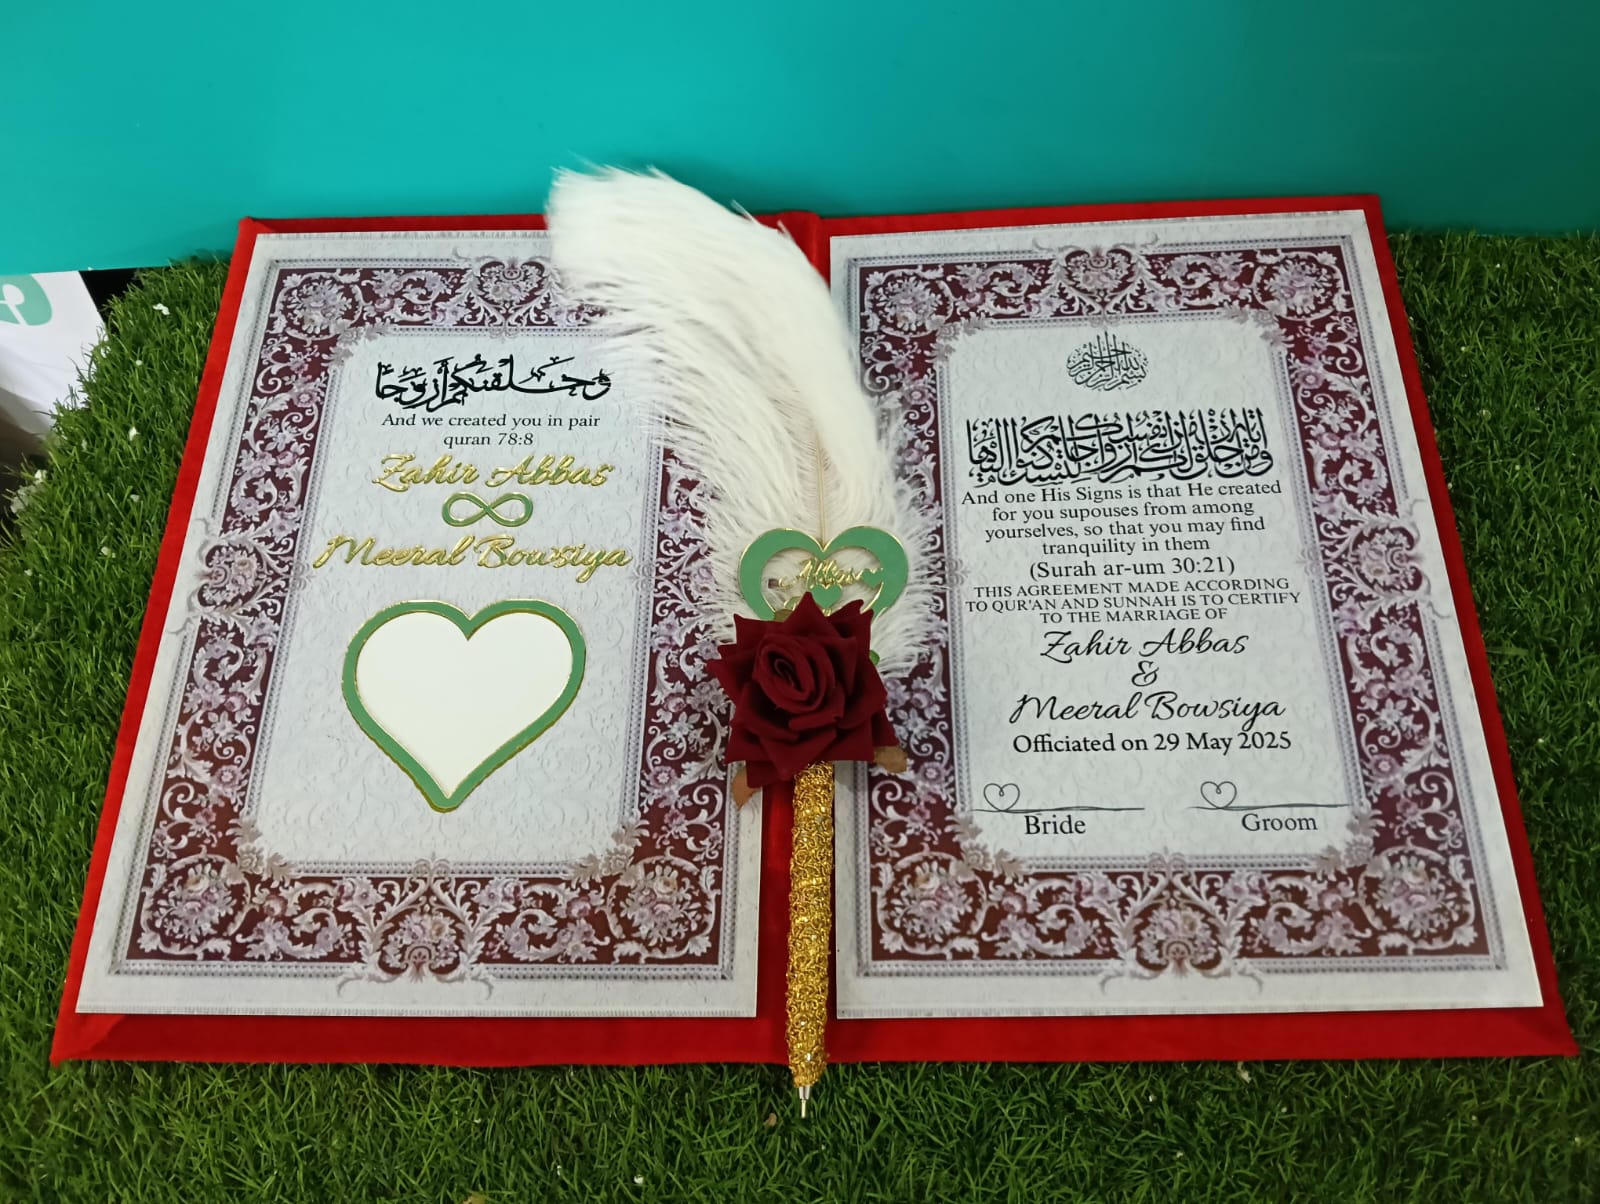 وخلقنكم أزوجا
And we created you in pair
quran 78:8
Zahir Abbas
Meeral Bowsiya
Abbas
بسم الله الرحمن الرحيم
ومن آياته أن خلق لكم من أنفسكم أزواجا لتسكنوا إليها
And one His Signs is that He created
for you supouses from among
yourselves, so that you may find
tranquility in them
(Surah ar-um 30:21)
THIS AGREEMENT MADE ACCORDING
TO QUR'AN AND SUNNAH IS TO CERTIFY
TO THE MARRIAGE OF
Zahir Abbas
&
Meeral Bowsiya
Officiated on 29 May 2025
Bride
Groom